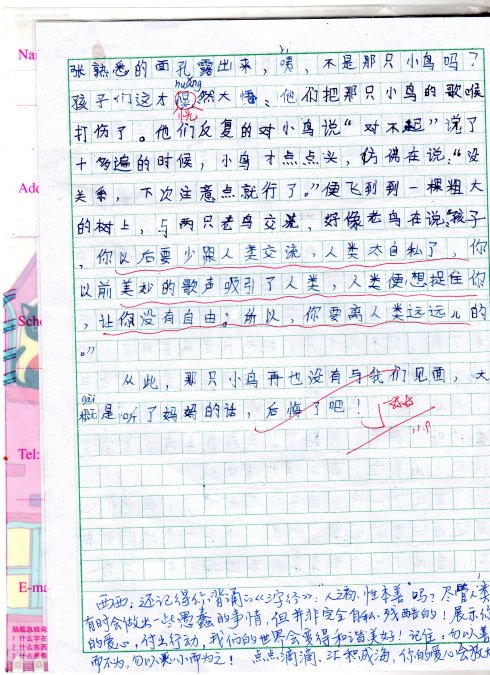 Nam
张熟悉的面孔露出来，咦，不是那只小鸟吗？
yí
huǎng
孩子们这才然大悟、他们把那只小鸟的歌喉
恍
打伤了。他们反复的对小鸟说“对不起”说了
十多遍的时候，小鸟才点点头，仿佛在说，“没
关系，下次注意点就行了。”便飞到到一棵粗大
的树上，与两只老鸟交流，好像老鸟在说，“孩子
Add
，你以后要少跟人类交流，人类太自私了，你
以前美妙的歌声吸引了人类，人类便想捉住你
Scho
，让你没有自由。所以，你要离人类远远儿的
。”
从此，那只小鸟再也没有与我们见面，大
gài
概是听了妈妈的话，后悔了吧！
11.9
Tel:
E-ma
西西：还记得你背诵的《三字经》：“人之初，性本善”吗？尽管人类
有时会做出一些愚蠢的事情，但并非完全自私、残酷的！展示你
的爱心，付出行动，我们的世界会变得和谐美好！记住：勿以善小
而不为，勿以恶小而为之！点点滴滴，汇积成海，你的爱心会放大
脑筋急转弯
1 什么字在
2 什么东西
3 什么果